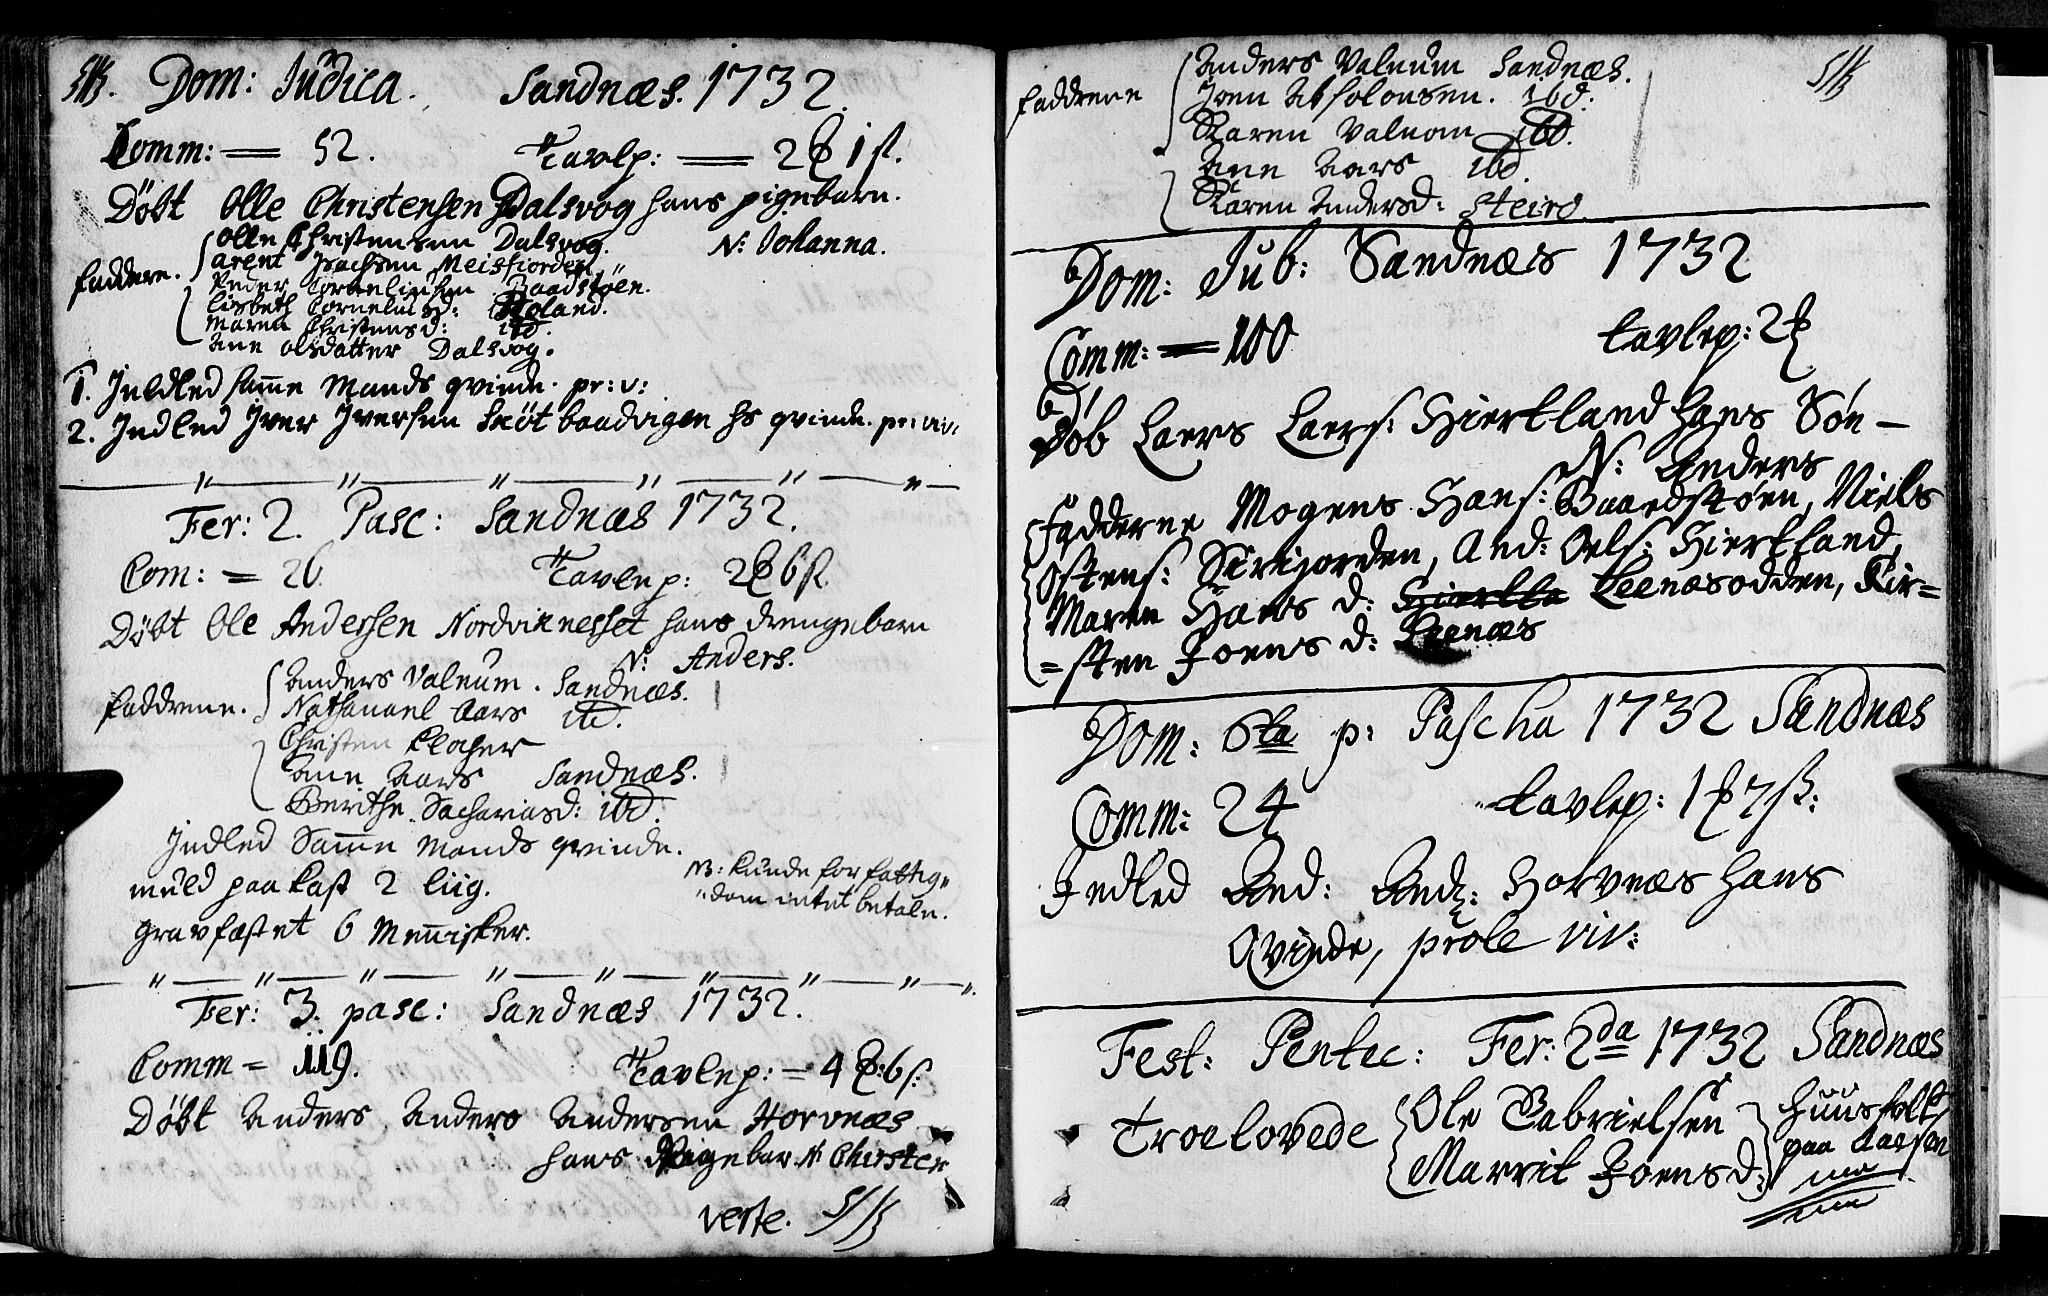 Dom: Iudica. Sandnæs. 1732.
Comm: = 52. Tavlp: = 2 1 ß.
Döbt Olle Christensen Dalsvog hans pigebarn.
N: Johanna.
faddere.
Olle Christensen Dalsvog.
Arent Isachsen Meisfiorden
Peder Corneliusen Baadstöen.
Lisbeth Corneliusd: Roland.
Maren Christensd: ibd.
Ane Olsdatter Dalsvog.
1. Indled samme Mands qvinde. pr: v:
2. Indled Iver Iversen baadvigen hs qvinde. pr: viv:
Fer: 2. Pasc: Sandnæs 1732.
Com: = 26. Tavlep: 2 6 ß.
Döbt Ole Andersen Nordviknesset hans drengebarn
N: Anders.
faddrene.
Anders Valnum. Sandnæs.
Nathanael Aars ibd.
Christen Klocher
Ane Aars Sandnæs.
Berithe Sachariasd: ibd.
Indled Samme Mands qvinde.
muld paa kast 2 liig.
NB: kunde for fattig"
"dom intet betale.
gravfæstet 6 Mennisker.
Fer: 3. pasc: Sandnæs 1732.
Comm = 119. Tavlep: = 4 : 6 ß:
Döbt Anders Anders Andersen Horvnæs
hans Pigebar N: Chirsten
verte.
faddrene
Anders Valnum Sandnæs.
Joen Absolonsen. ibd:
Karen Valnom ibd.
Ane Aars ibd.
Karen Andersd: Steiro.
Dom: Jub: Sandnæs 1732
Comm: = 100 tavlep: 2
Döb Laers Laers: Hiertland hans Sön —
N: Anders
Fadderne Mogens Hans: Baardstöen, Niels
Ostens: , And: Oels: Hiertland,
Maren Hans d: Hiertla Leenæsodden, Kir=
=sten Joens d: Leenæs
Dom: 6ta p: Pascha 1732 Sandnæs
Comm: 24 tavlep: 1 7 ß:
Indled And: And: Horvnæs hans
Qvinde, prole viv:
Fest: Pentec: Fer: 2da 1732 Sandnæs
Troelovede
Ole Gabrielsen
Marrit Joensd:
huusfolk
paa